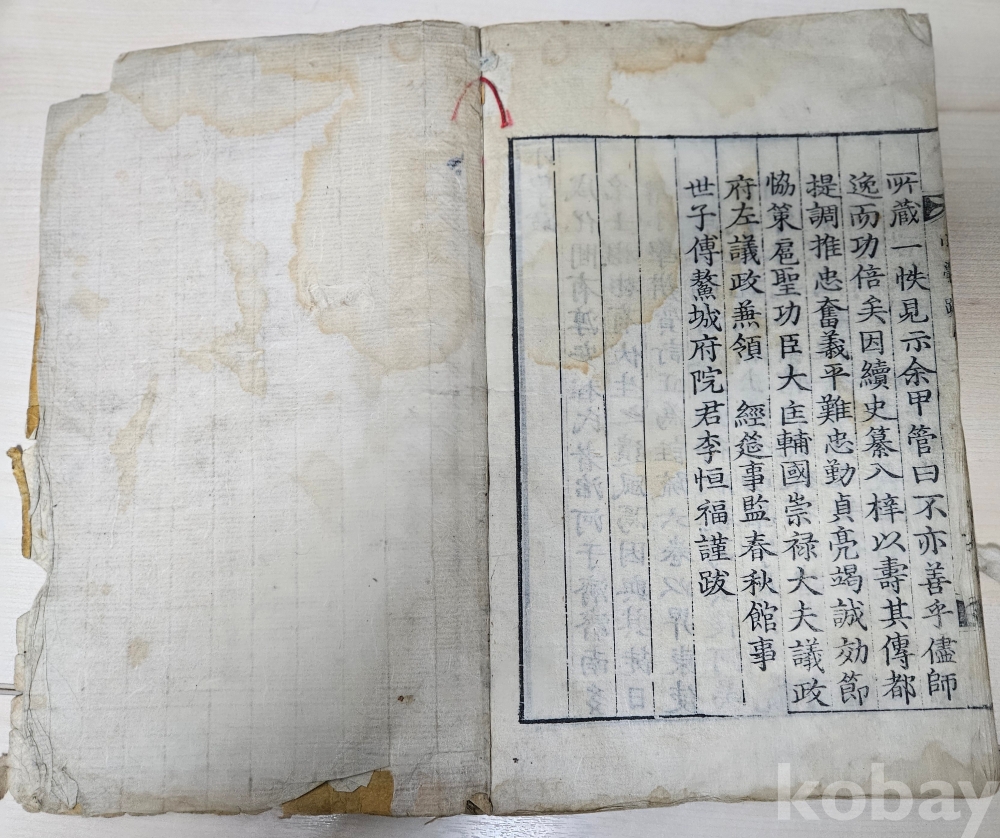 所藏一帙見示余甲管曰不亦善乎儘師
逸而功倍矣因續史纂入梓以壽其傳都
提調推忠奮義平難忠勤貞亮竭誠効節
恊策扈聖功臣大匡輔國崇祿大夫議政
府左議政兼領 經筵事監春秋館事
世子傅鰲城府院君李恒福謹跋
kobay